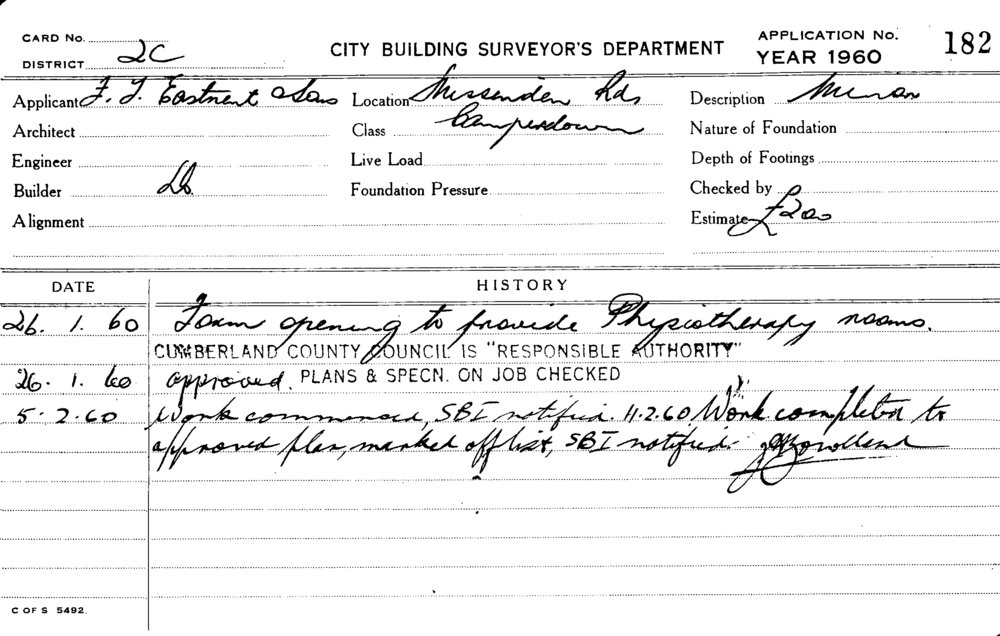 CARD No.
DISTRICT 2C
CITY BUILDING SURVEYOR'S DEPARTMENT
APPLICATION No. 182
YEAR 1960
Applicant F. T. Eastment & Sons Location Missenden Rd, Description Minor
Architect Class Camperdown Nature of Foundation
Engineer Live Load Depth of Footings
Builder Do. Foundation Pressure Checked by
Alignment Estimate £200
DATE HISTORY
26. 1. 60 Form opening to provide Physiotherapy rooms.
CUMBERLAND COUNTY COUNCIL IS "RESPONSIBLE AUTHORITY"
26. 1. 60 approved. PLANS & SPECN. ON JOB CHECKED
5. 2. 60 Work commenced, SBI notified. 11.2.60 Work completed to
approved plan, marked off list, SBI notified.
C OF S 5492.